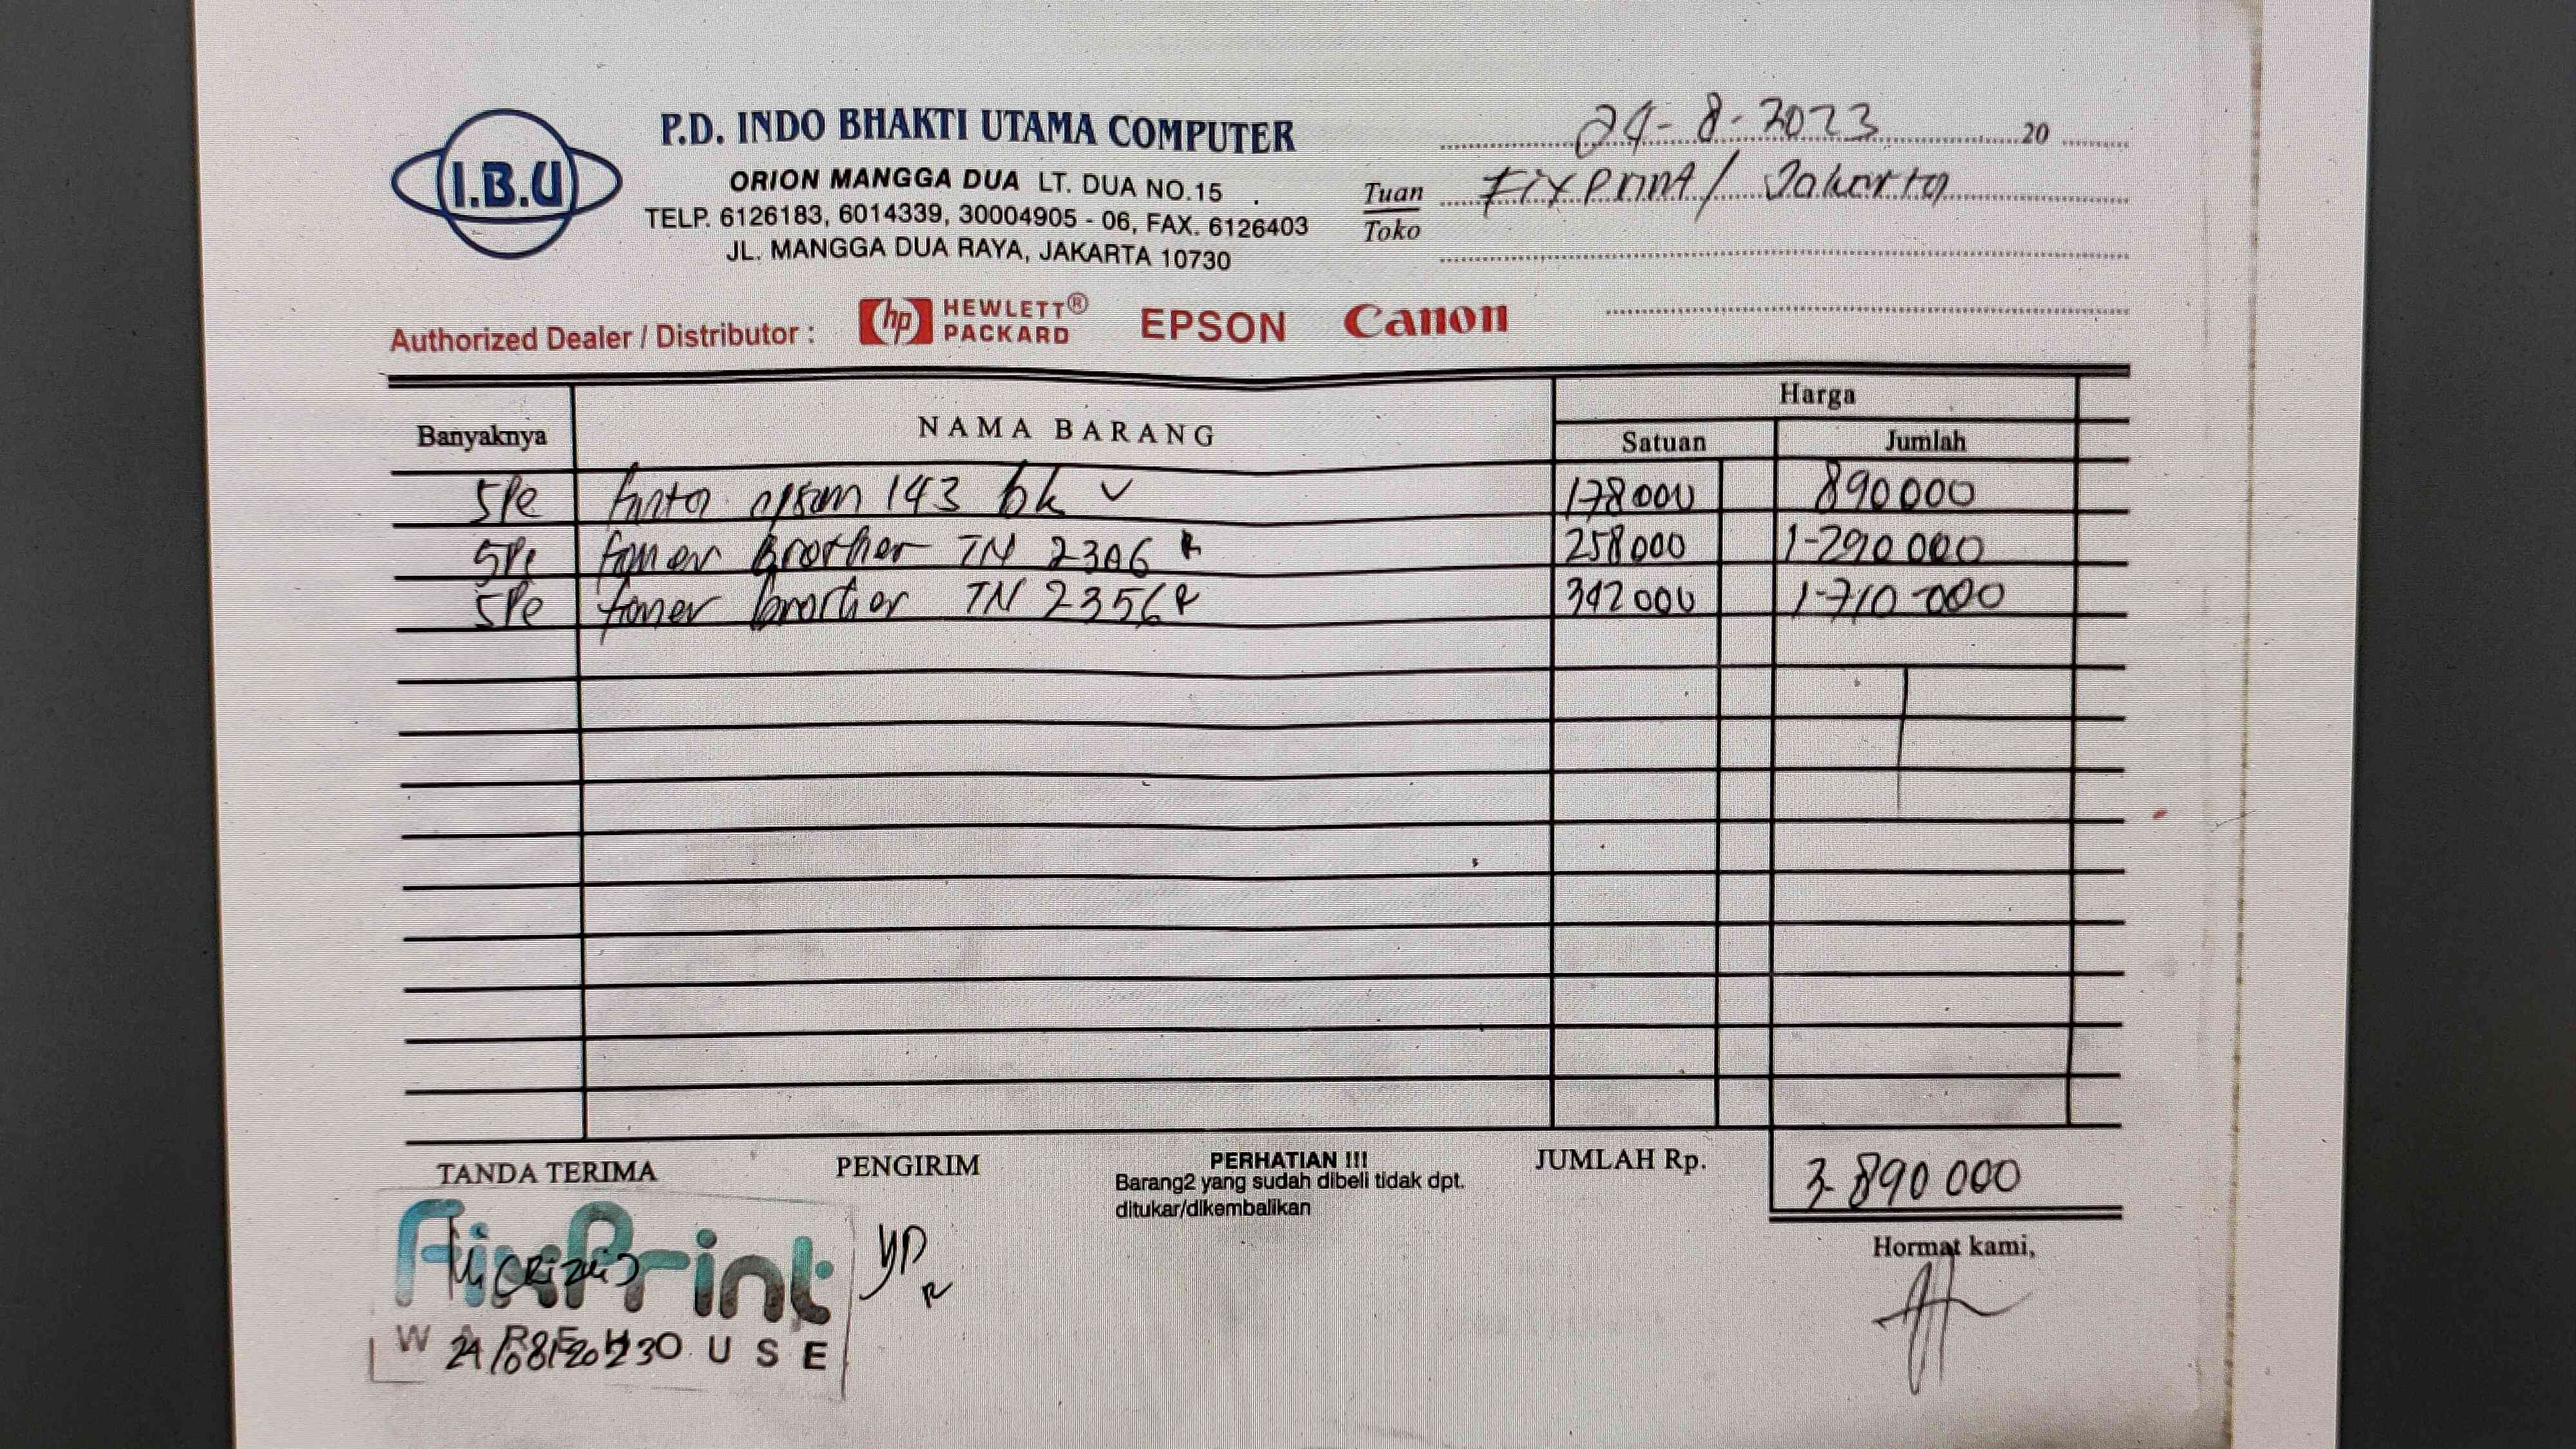 I.B.U
P.D. INDO BHAKTI UTAMA COMPUTER
ORION MANGGA DUA LT. DUA NO.15
TELP. 6126183, 6014339, 30004905 - 06, FAX. 6126403
JL. MANGGA DUA RAYA, JAKARTA 10730
24-8-2023 20
Tuan Toko Fixprint / Jakarta
Authorized Dealer / Distributor : hp HEWLETT® PACKARD EPSON Canon
Banyaknya NAMA BARANG Harga
Satuan Jumlah
5Pc 143 bk 178 000 890 000
5Pc toner Brother TN 2306 258 000 1-290 000
5Pc toner brother TN 2356 342 000 1-710-000
TANDA TERIMA PENGIRIM PERHATIAN !!! JUMLAH Rp. 3-890 000
Barang2 yang sudah dibeli tidak dpt.
ditukar/dikembalikan
Hormat kami,
FixPrint
WAREHOUSE